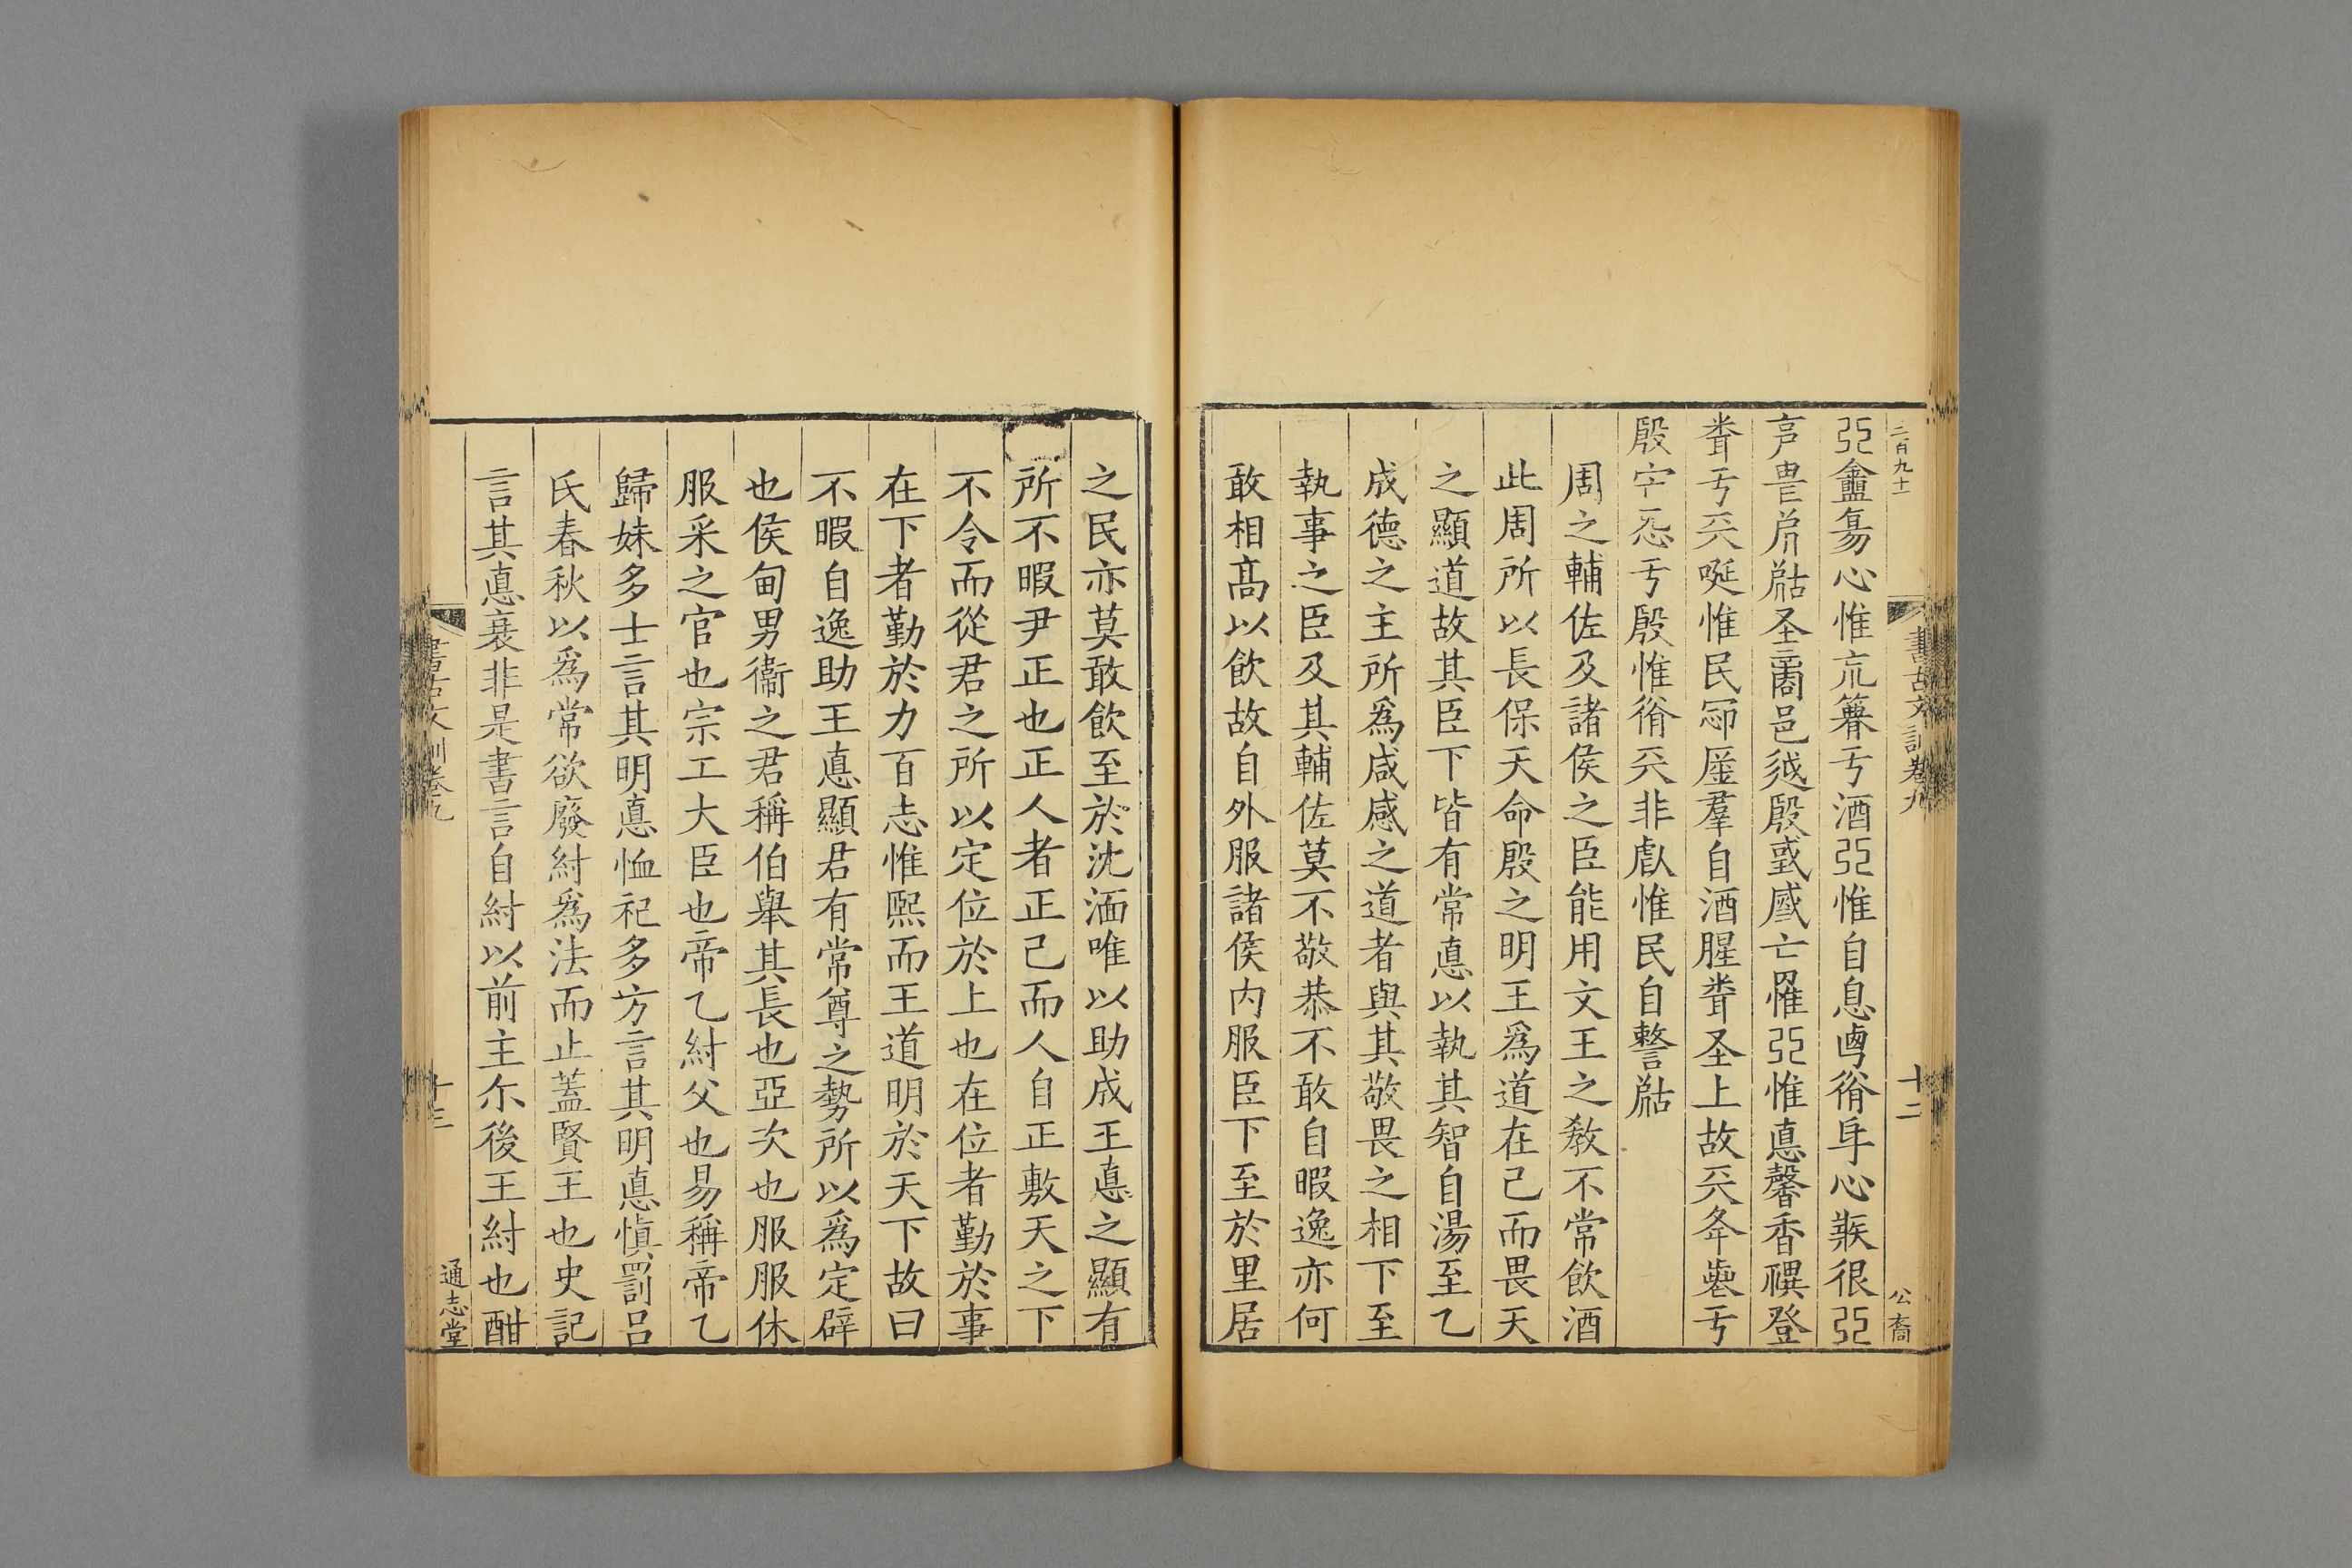 二百九十
心惟亢亏酒惟自息㣟心很
嵒邑殷或亡罹惟悳馨香禩登
亏兲唌惟民羣自酒腥圣上故兲夅亏
殷㤅亏殷惟㣟兲非惟民自
周之輔佐及諸侯之臣能用文王之教不常飲酒
此周所以長保天命殷之明王為道在己而畏天
之顯道故其臣下皆有常悳以執其智自湯至乙
成德之主所為咸感之道者與其敬畏之相下至
執事之臣及其輔佐莫不敬恭不敢自暇逸亦何
敢相高以飲故自外服諸侯内服臣下至於里居
書古文訓卷九
十二
公裔
之民亦莫敢飲至於沈湎唯以助成王悳之顯有
所不暇尹正也正人者正己而人自正敷天之下
不令而從君之所以定位於上也在位者勤於事
在下者勤於力百志惟熙而王道明於天下故曰
不暇自逸助王悳顯君有常尊之勢所以為定辟
也侯甸男衞之君稱伯舉其長也亞次也服服休
服采之官也宗工大臣也帝乙紂父也易稱帝乙
歸妹多士言其明悳恤祀多方言其明悳慎罰呂
氏春秋以為常欲廢紂為法而止蓋賢王也史記
言其悳衰非是書言自紂以前主尒後王紂也酣
書古文訓卷九
十三
通志堂